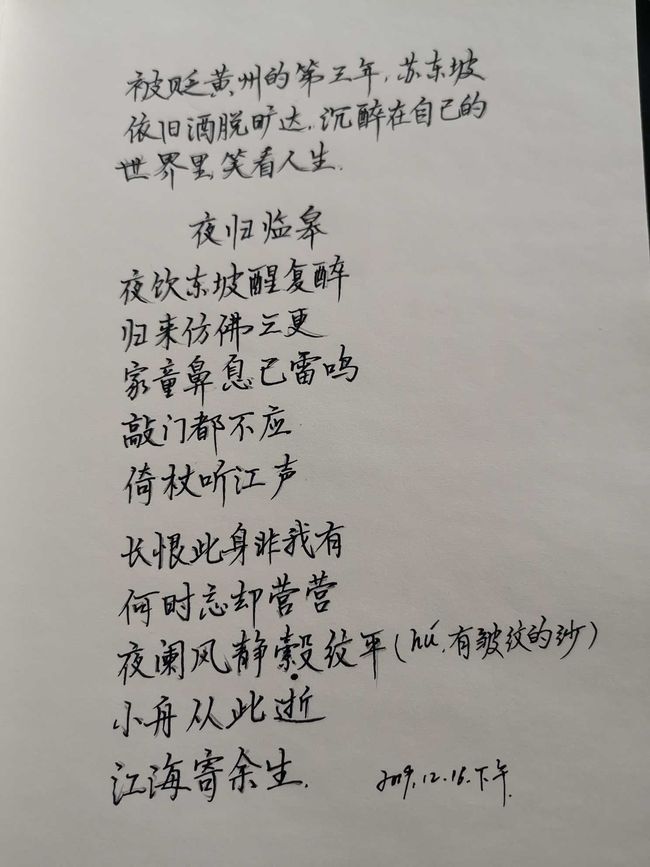 被贬黄州的第三年,苏东坡
依旧洒脱旷达,沉醉在自己的
世界里,笑看人生.
夜归临皋
夜饮东坡醒复醉
归来仿佛三更
家童鼻息已雷鸣
敲门都不应
倚杖听江声
长恨此身非我有
何时忘却营营
夜阑风静縠纹平(hú,有皱纹的纱)
小舟从此逝
江海寄余生.
2019.12.16.下午.